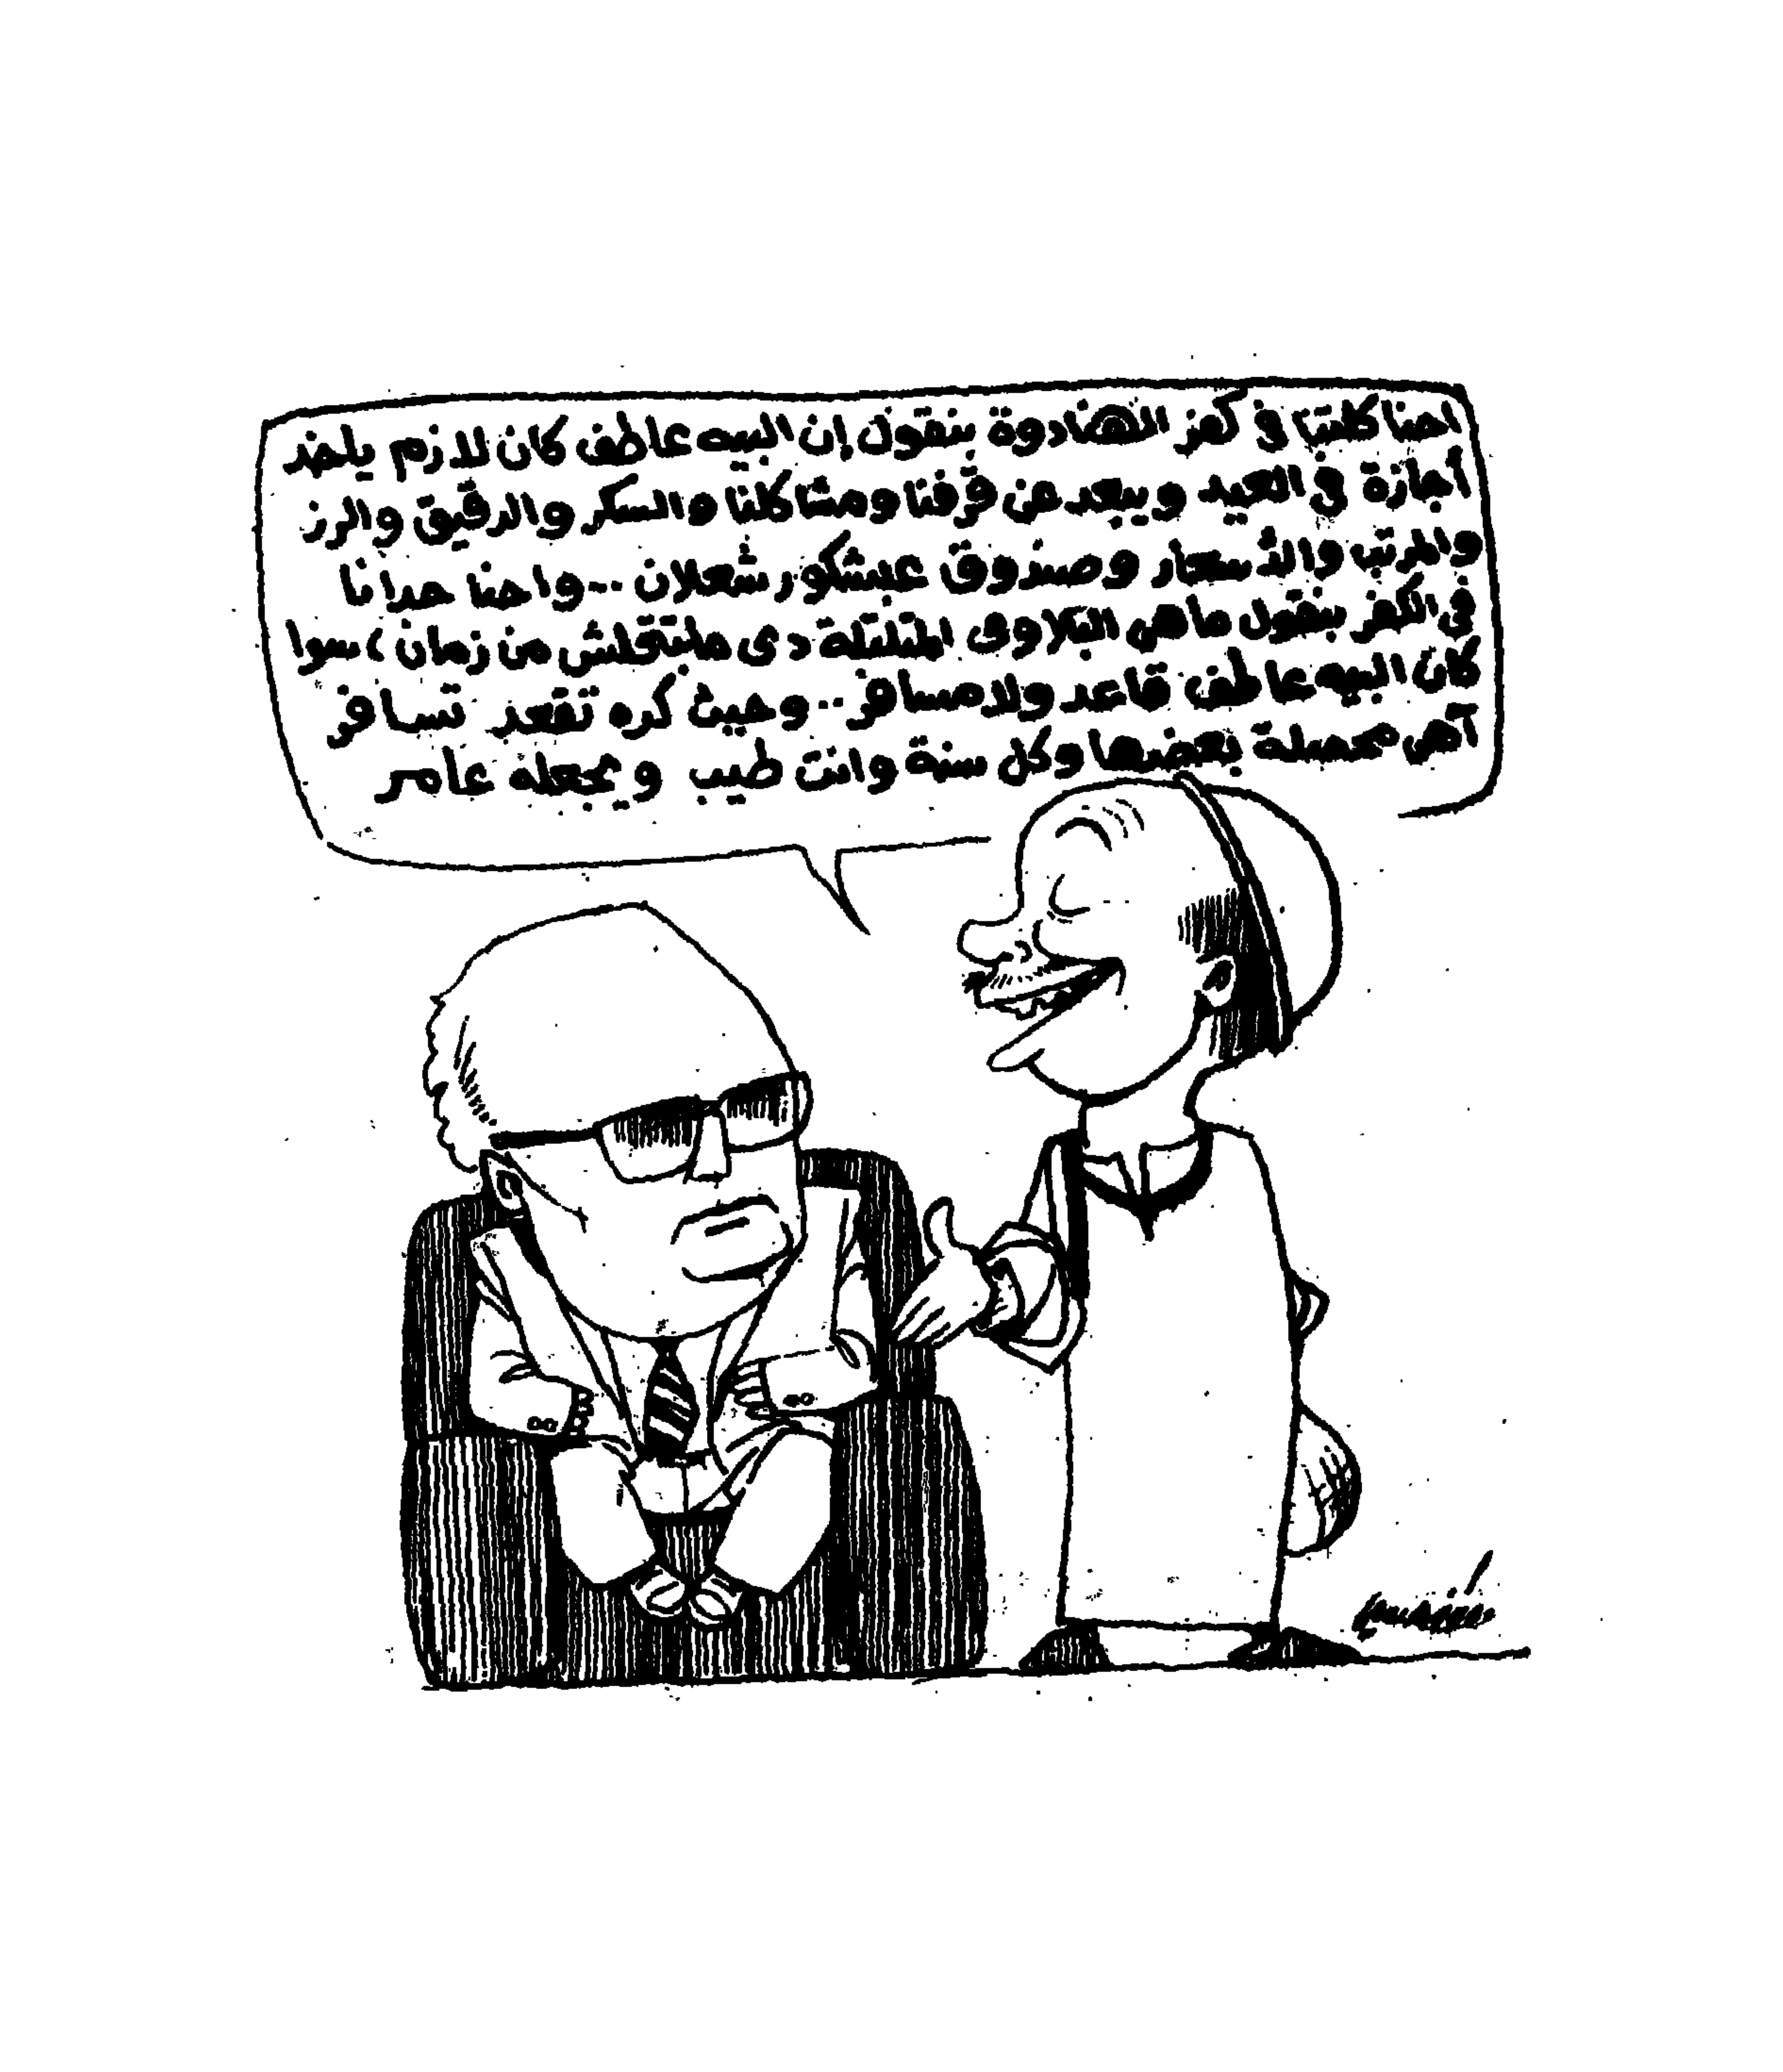 احنا كلتنا في كفر الهنادوة بنقول إن البيه عاطف كان لازم ياخد
أجازة في العيد ويبعد عن قرفنا ومشاكلنا والسكر والدقيق والرز
والمرتب والأسعار وصندوق عبشكور شعلان .. واحنا حدانا
في الكفر بنقول ماهي البلاوي المتلتلة دي مابتقلش من زمان، سوا
كان البيه عاطف قاعد ولا مسافر .. وحيث كره تقعد تسافر
آهي محصلة بعضها وكل سنة وانت طيب ويجعله عامر